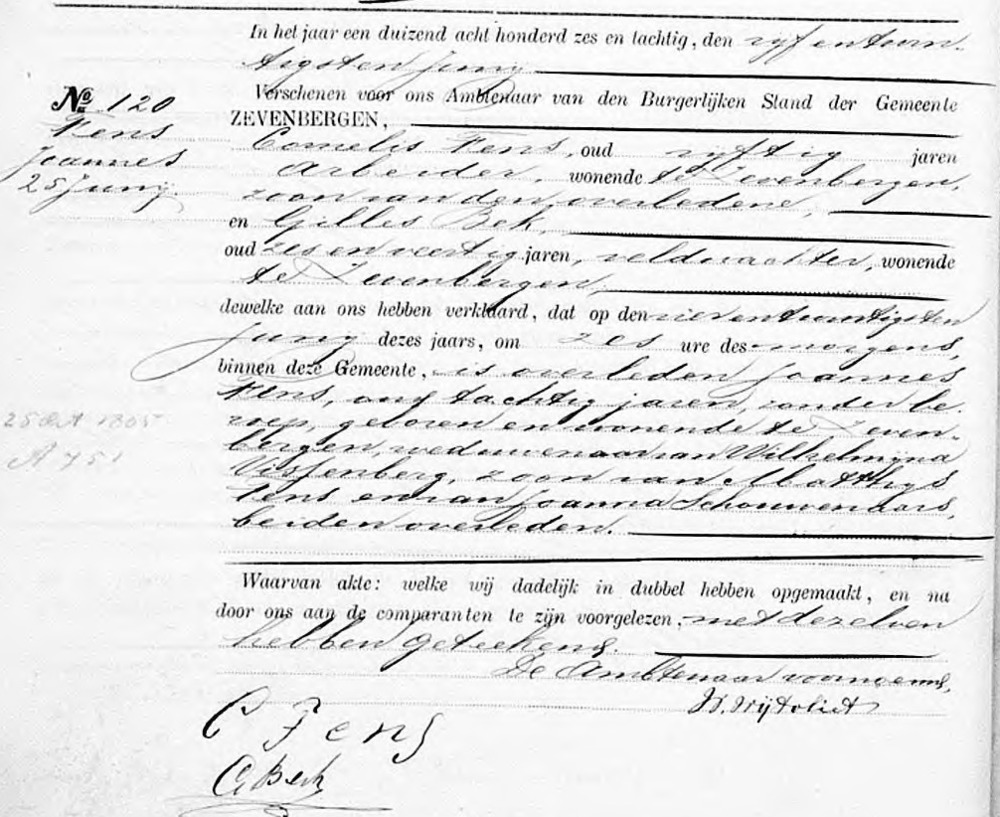 In het jaar een duizend acht honderd zes en tachtig, den vyf en twin-
tigsten Juny
No. 120
Fens
Joannes
25 Juny.
Verschenen voor ons Ambtenaar van den Burgerlijken Stand der Gemeente
ZEVENBERGEN,
Cornelis Fens, oud vyftig jaren
Arbeider, wonende te Zevenbergen,
zoon van den overledene,
en Gilles Bek,
oud zes en veertig jaren, veldwachter, wonende
te Zevenbergen
dewelke aan ons hebben verklaard, dat op den vier en twintigsten
Juny dezes jaars, om zes ure des morgens,
binnen deze Gemeente, is overleden Joannes
Fens, oud tachtig jaren, zonder be-
roep, geboren en wonende te Zeven-
bergen, weduwenaar van Wilhelmyna
Vissenberg, zoon van Matthys
Fens en van Joanna Schouwenaars,
beiden overleden.
25 Oct 1805
A 751
Waarvan akte: welke wij dadelijk in dubbel hebben opgemaakt, en na
door ons aan de comparanten te zijn voorgelezen, met dezelven
hebben geteekend.
De Ambtenaar voornoemd,
C Fens
G Bek